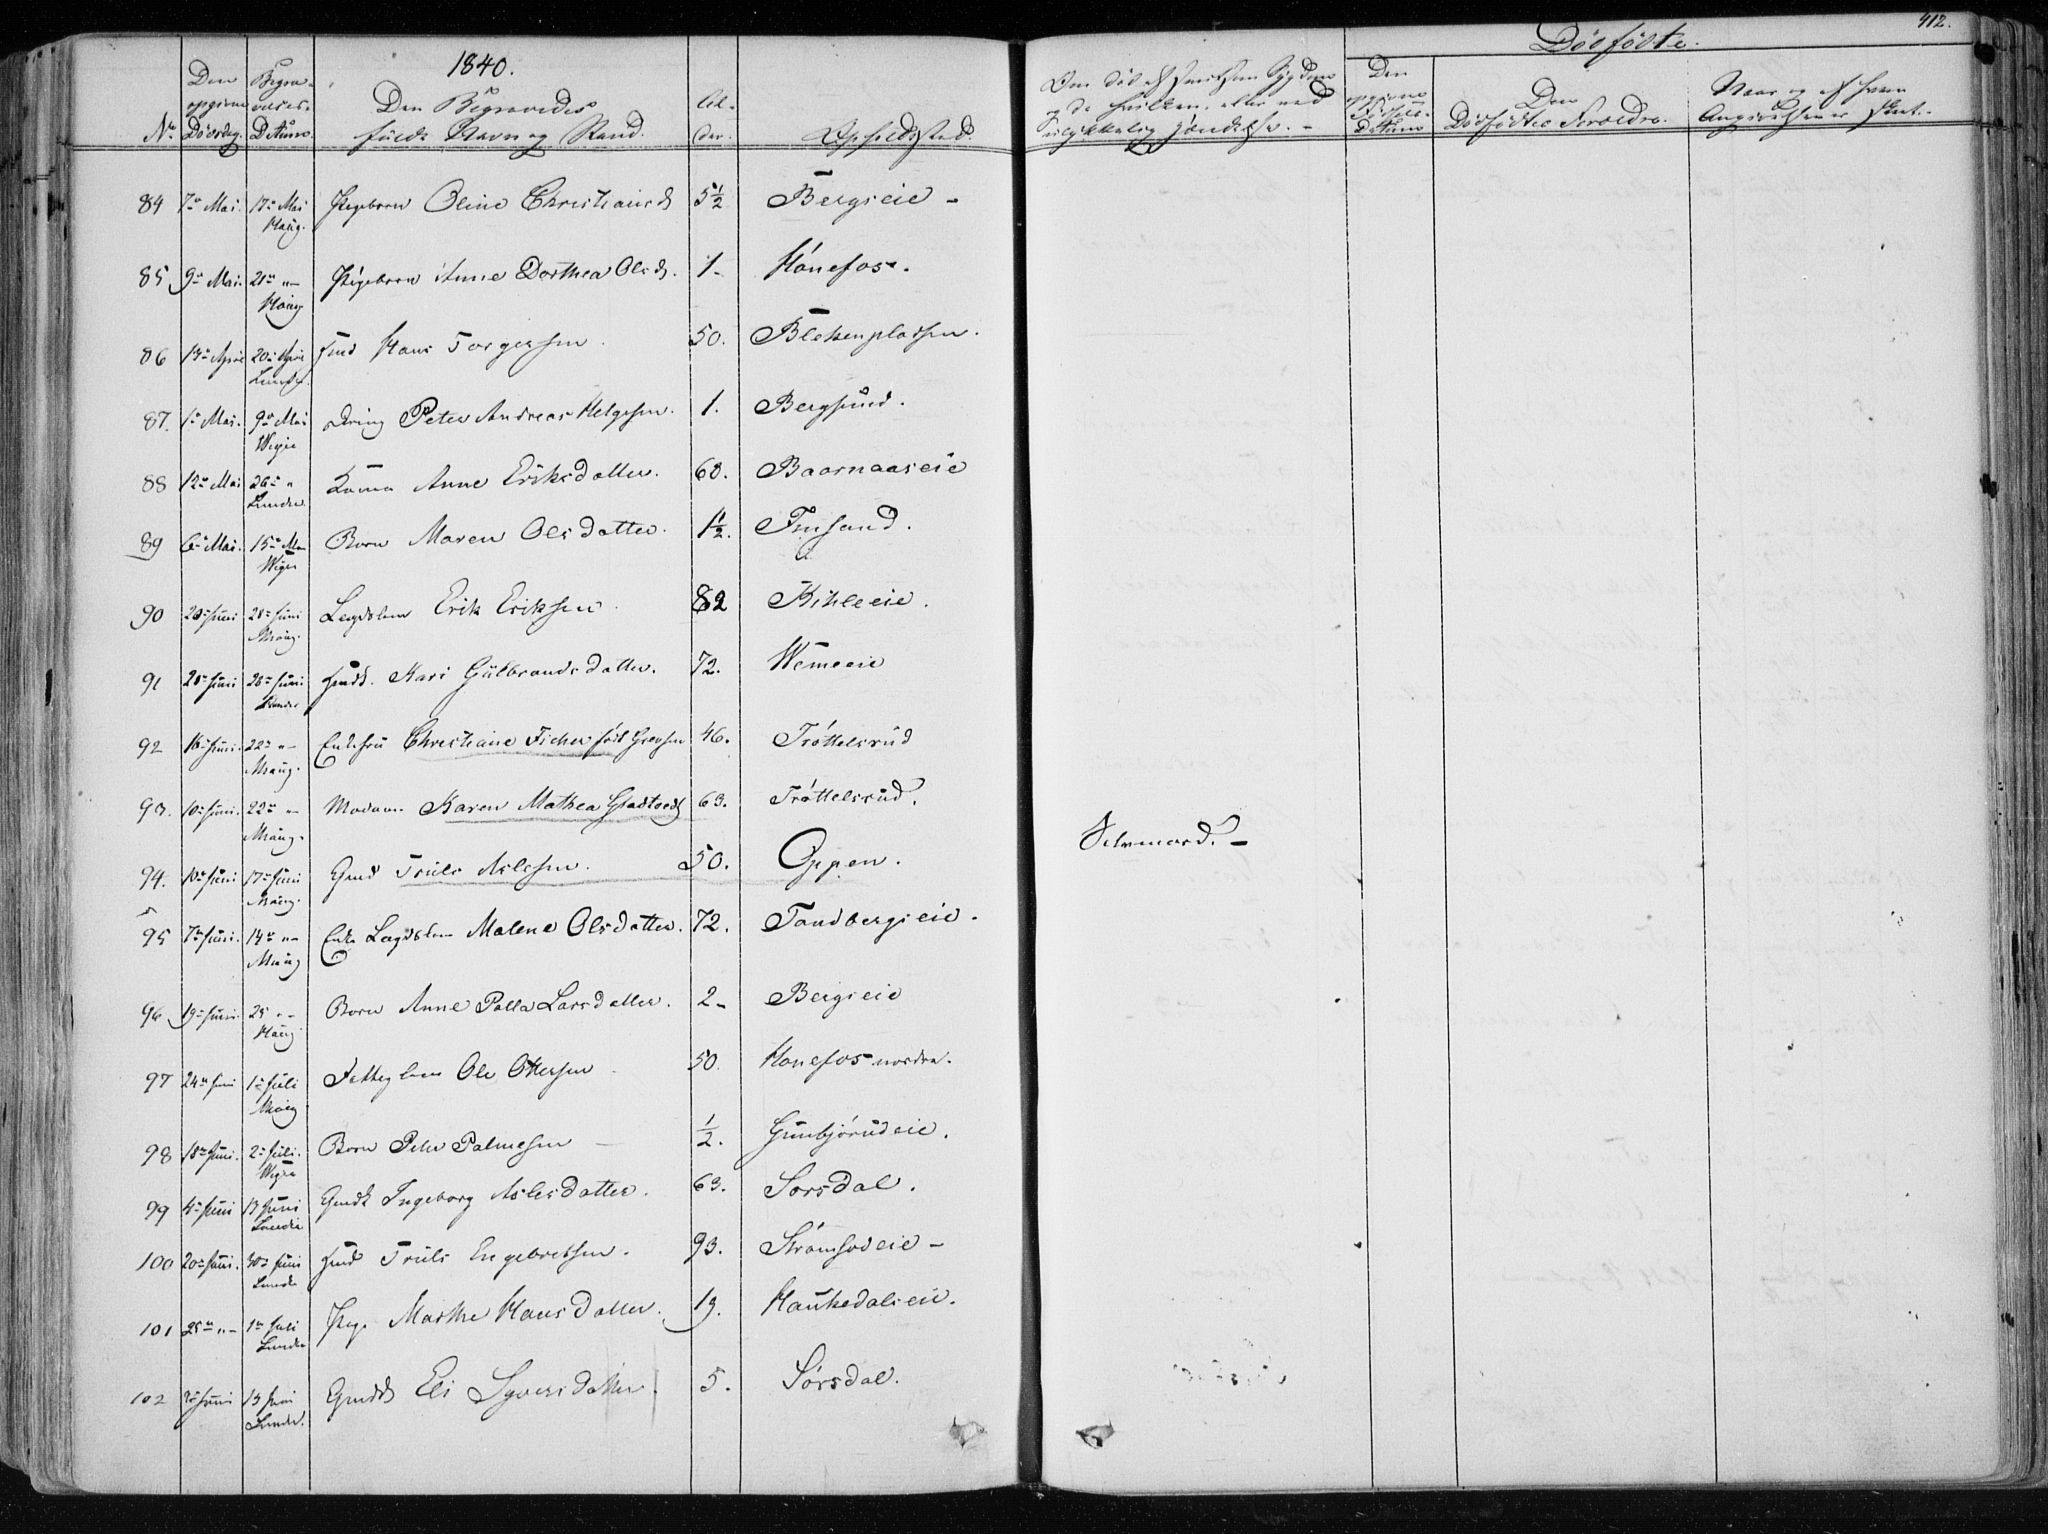 412.
1840.
Dødfødte.
No
Den opgivne Dødsdag.
Begravelses-Datum.
Den Begravedes fulde Navn og Stand.
Al-der.
Opholdssted.
Den
Dødfødtes Forældre.
84 7de Mai. 17de Mai Haug. Pigebarn Oline Christiansd 5 1/2 Bergseie -
85 9de Mai. 21de " Haug Pigebarn Anne Dorthea Olsd. 1 - Hönefos.
86 13de April 20de April Lunder. Hans Torgersen. 50. Blekenpladsen.
87. 1de Mai. 9de Mai Wegje Dreng Peter Andreas Helgesen. 1. Bergsund.
88 12de Mai 26de " Lunder. Kone Anne Eriksdatter. 60. Baarnaaseie
89 6te Mai. 15de Mai Wegje Barn Maren Olsdatter. 1 1/2. Finsand.
90 20de Juni 28de Juni Haug. Lægdslem Erik Eriksen. 82 Kihleeie.
91 20de Juni 28de Juni Lunder Kari Gulbrandsdatter. 72. Wemeeie
92 16de Juni. 22de " Haug. Enkefru Christiane Ficher født Greysen 46. Tröttelsrud
93. 10de Juni. 22de " Haug. Madam Karen Mathea Gladtvedt 63. Tröttelsrud.
94. 10de Juni 17de Juni Haug. Gmd Truls Aslesen. 50. Oppen. Selvmord. -
95 7de Juni. 14de " Haug Enke Lægdslem Malene Olsdatter. 72. Tandbergseie.
96 19de Juni. 25 " Haug Barn Anne Palla Larsdatter. 2 - Bergseie
97 24de Juni 1de Juli Haug Fattiglem Ole Ottersen 50. Hönefos nordre.
98 18de Juni. 2de Juli. Wegje Barn Peder Palmesen 1/2. Gunbjörudeie.
99 4de Juni 13 Juni Lunder Gmdk Ingeborg Aslesdatter. 63. Sorsdal.
100 20de Juni. 30de Juni Lunder Truls Engebretsen. 93. Strömsodeie -
101 25de " 1de Juli Lunder Pige Marthe Hansdatter. 19. Haukedalseie.
102 Juni 13 Juni Lunder. Eli Syversdatter. 5. Sörsdal.